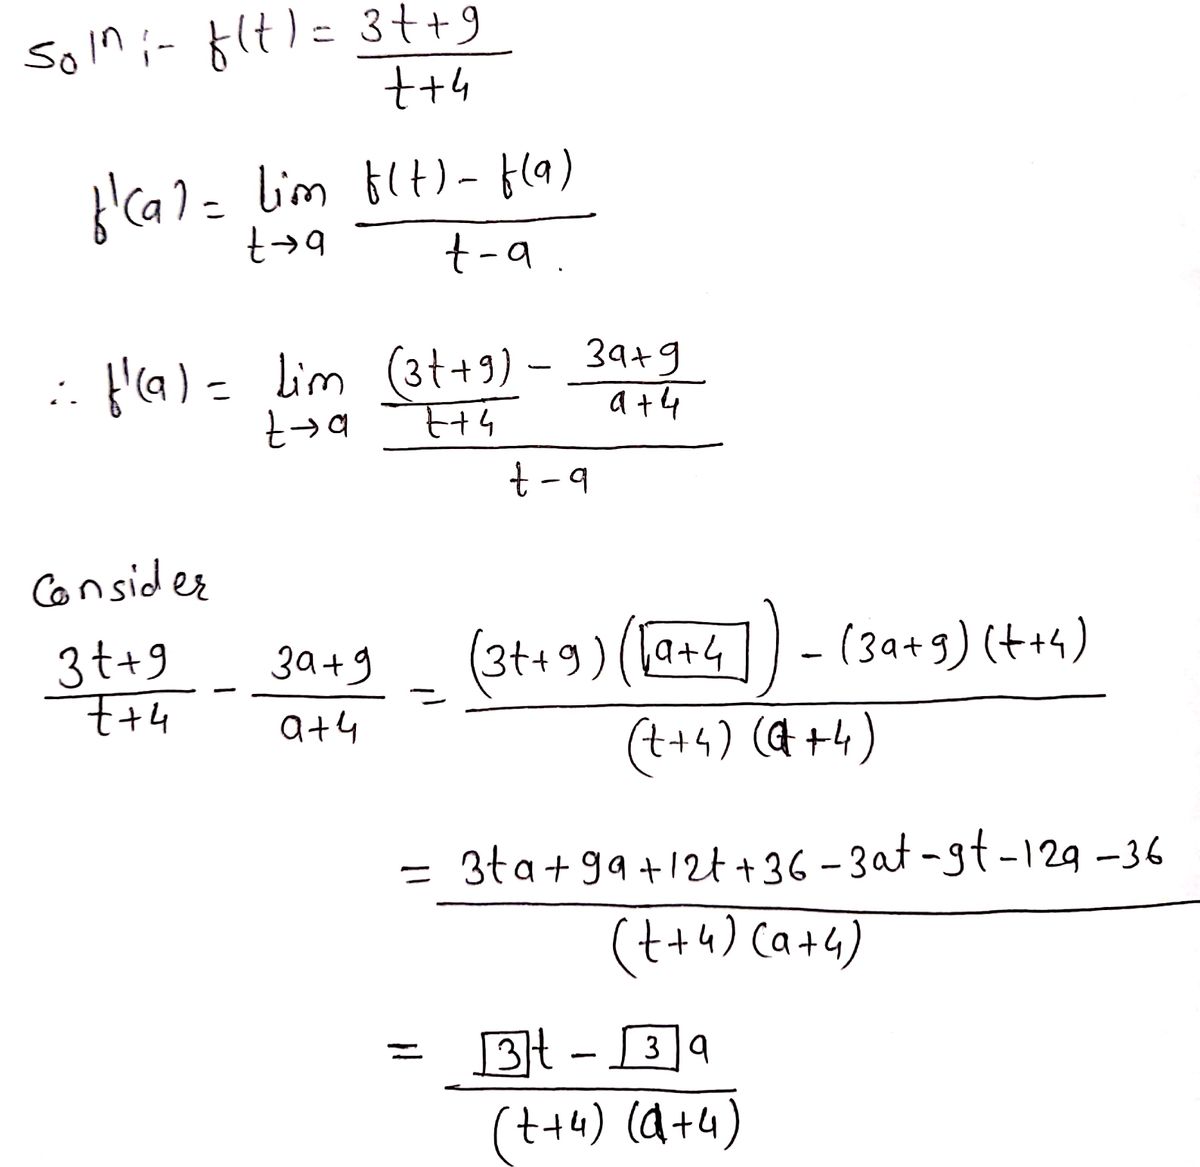 Soln :- f(t) = (3t+9)/(t+4)
f'(a) = lim t→a (f(t) - f(a))/(t-a).
∴ f'(a) = lim t→a ((3t+9)/(t+4) - (3a+9)/(a+4))/(t-a)
Consider
(3t+9)/(t+4) - (3a+9)/(a+4) = ((3t+9)(a+4) - (3a+9)(t+4))/((t+4)(a+4))
= (3ta+9a+12t+36-3at-9t-12a-36)/((t+4)(a+4))
= (3t - 3a)/((t+4)(a+4))